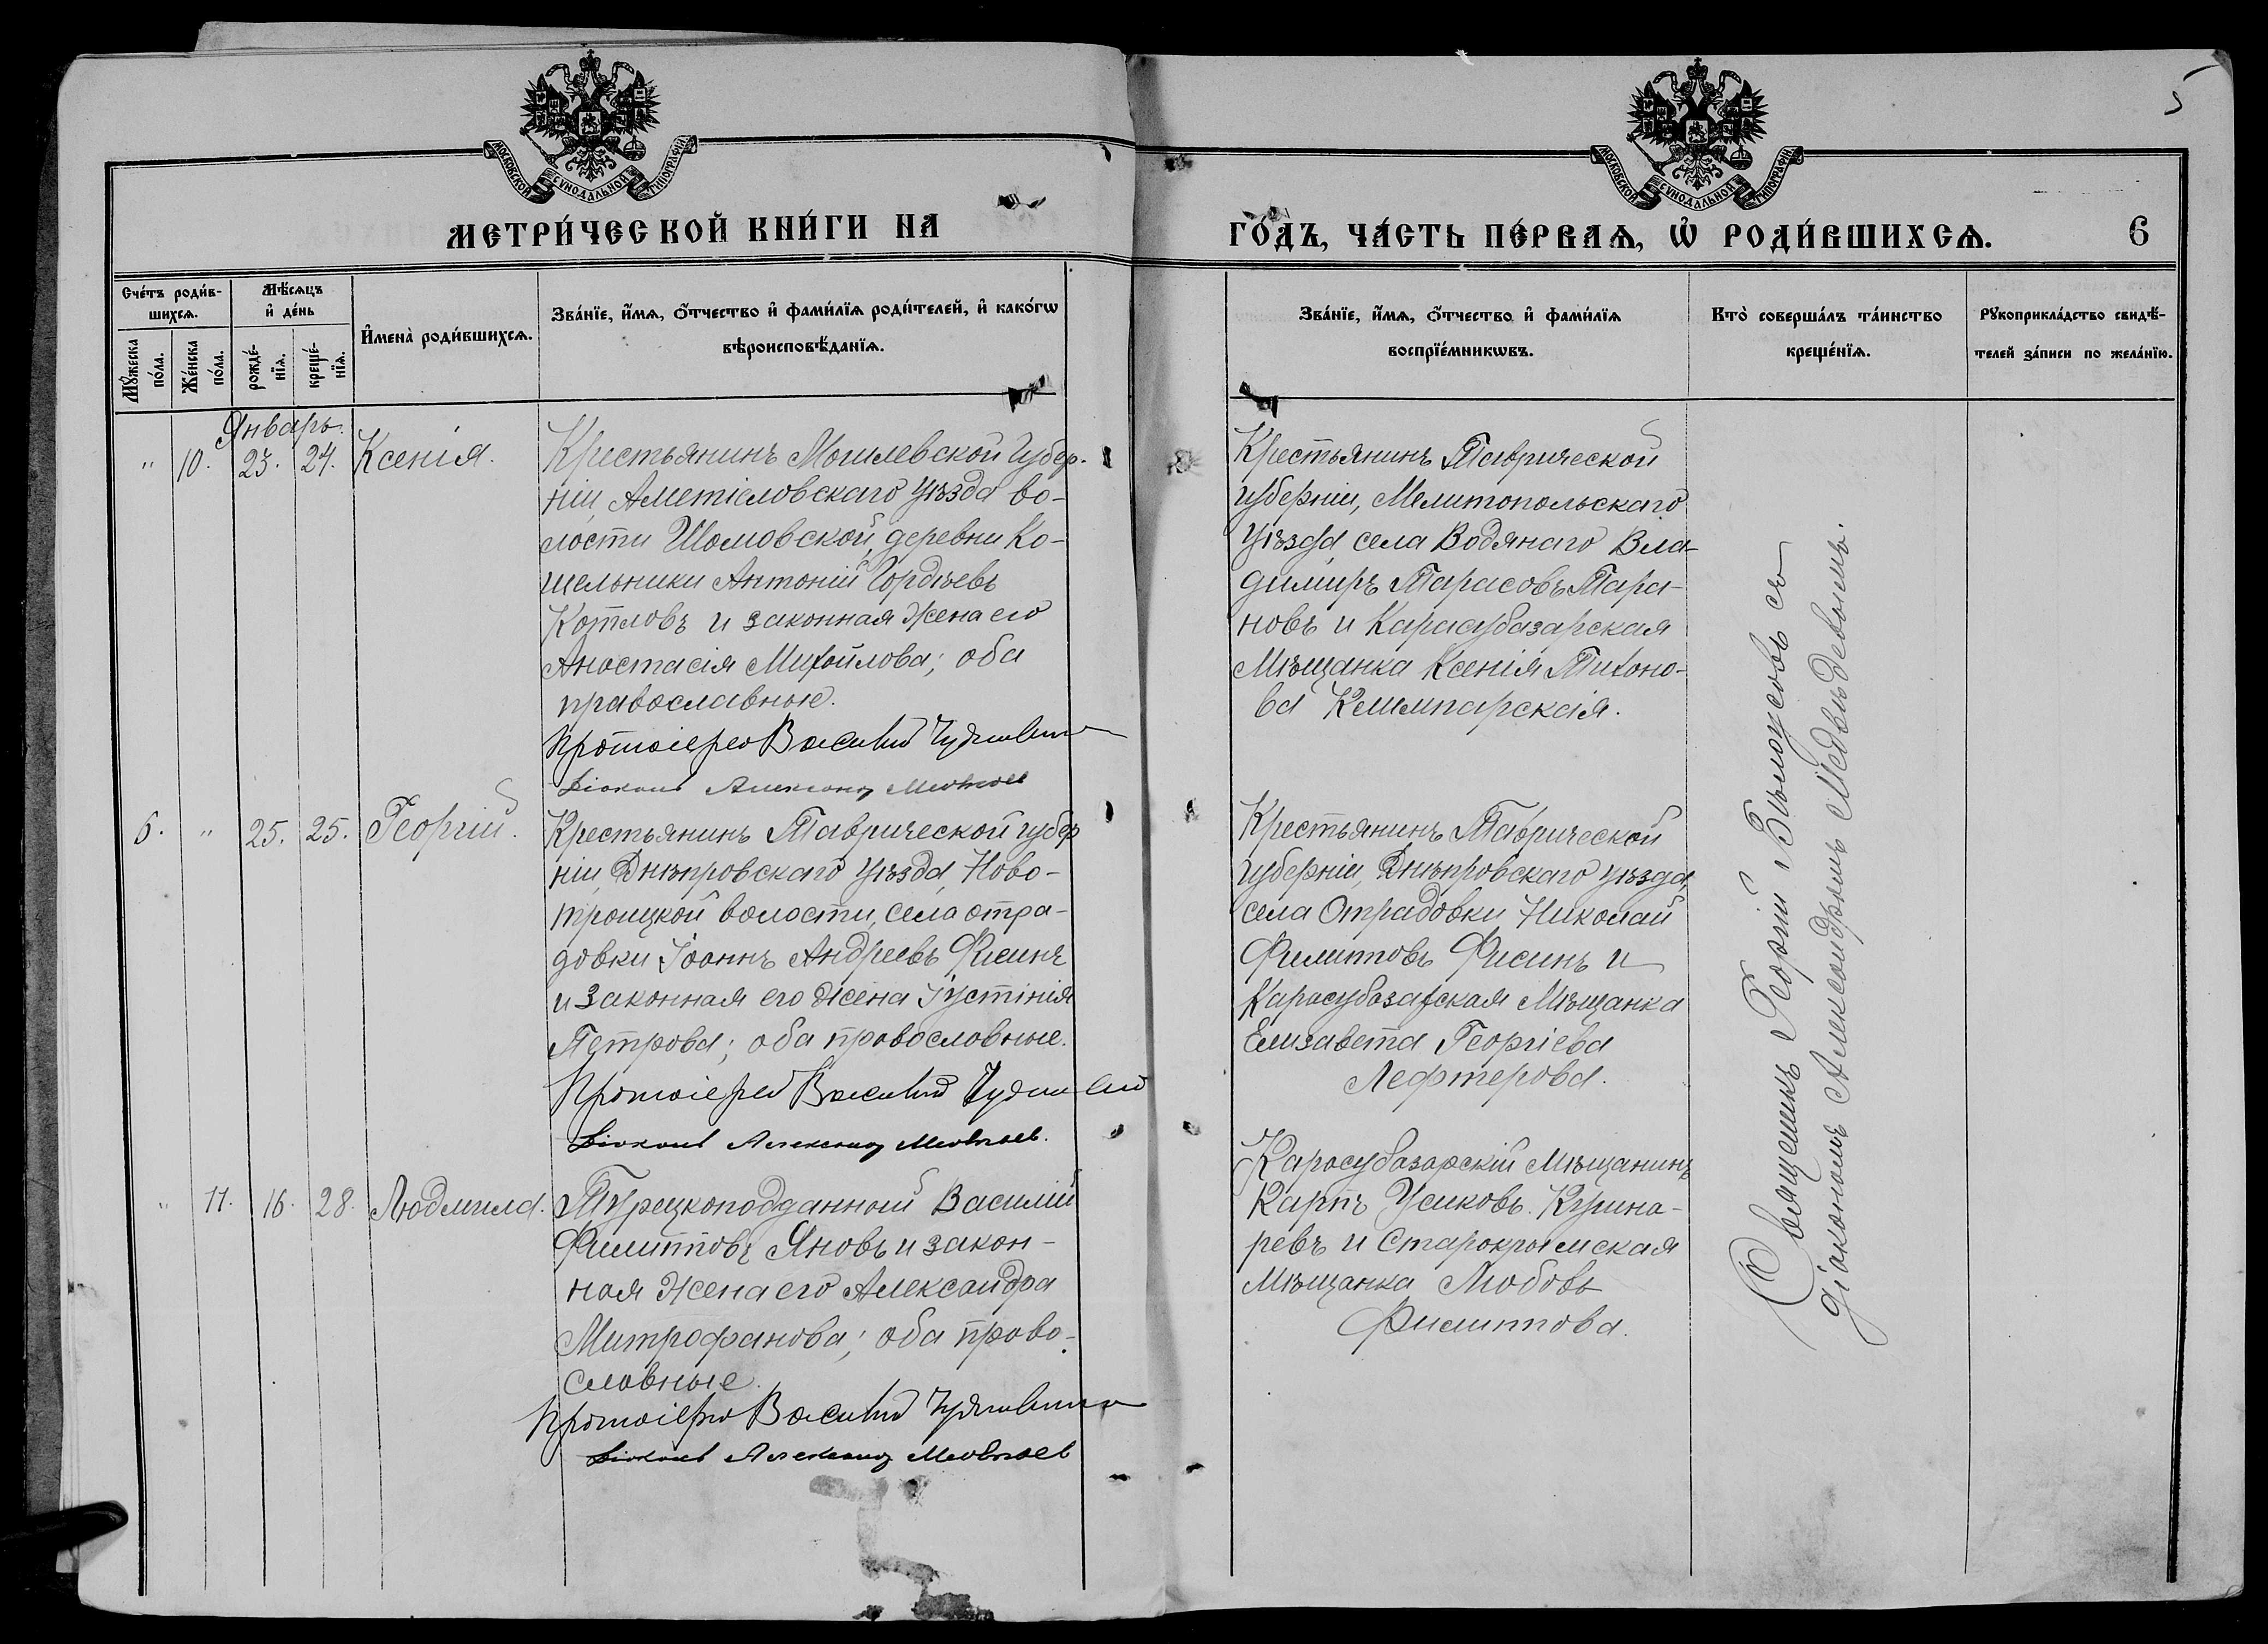 5
МОСКОВСКОЙ СѴНОДАЛЬНОЙ ТИПОГРАФІИ
МОСКОВСКОЙ СѴНОДАЛЬНОЙ ТИПОГРАФІИ
МЕТРИ́ЧЕСКОЙ КНИ́ГИ НА
ГО́ДЪ, ЧА́СТЬ ПЕ́РВАѦ, Ѡ҆ РОДИ́ВШИХСѦ.
6
Сче́тъ роди́в-
шихсѧ.
Мꙋ́жеска
по́ла.
Же́нска
по́ла.
Мѣ́сѧцъ
и҆ де́нь
рожде́-
нїѧ.
креще́-
нїѧ.
И҆мена̀ роди́вшихсѧ.
Зва́нїе, и҆́мѧ, ѻ҆́тчество и҆ фами́лїѧ роди́телей, и҆ како́гѡ
вѣроисповѣ́данїѧ.
Зва́нїе, и҆́мѧ, ѻ҆́тчество и҆ фами́лїѧ
воспрїе́мникѡвъ.
Кто̀ соверша́лъ та́инство
креще́нїѧ.
Рꙋкоприкла́дство свидѣ́-
телей за́писи по жела́нїю.
Январь.
" 10. 23. 24. Ксенія.
Крестьянинъ Могилевской губер-
ніи, Амстіславскаго уѣзда во-
лости Шамовской, деревни Ко-
шельники Антоній Гордѣевъ
Котловъ и законная жена его
Анастасія Михайлова; оба
православные.
Протоіерей Василій
Діаконъ Александр Медведев
Крестьянинъ Таврической
губерніи, Мелитопольскаго
уѣзда села Водянаго Вла-
диміръ Тарасовъ Тара-
новъ и Карасубазарская
мѣщанка Ксенія Тихоно-
ва
6. " 25. 25. Георгій.
Крестьянинъ Таврической губер
ніи, Днѣпровскаго уѣзда, Ново-
троицкой волости, села Отра-
довки Іоаннъ Андреевъ Фисинъ
и законная его жена Іустінія
Петрова; оба православные.
Протоіерей Василій
Діаконъ Александр Медведев.
Крестьянинъ Таврической
губерніи, Днѣпровскаго уѣзда,
села Отрадовки Николай
Филипповъ Фисинъ и
Карасубазарская мѣщанка
Елизавета Георгіева
Лефтерова.
" 11. 16. 28. Людмила.
Турецкоподданный Василій
Филипповъ Яновъ и закон-
ная жена его Александра
Митрофанова; оба право-
славные.
Протоіерей Василій
Діаконъ Александр Медведев
Карасубазарскій мѣщанинъ
Карпъ Усиковъ. Кушна-
ревъ и Старокрымская
мѣщанка Любовь
Филиппова.
Священникъ Георгій Бѣлоусовъ съ
діакономъ Александромъ Медвѣдевымъ.